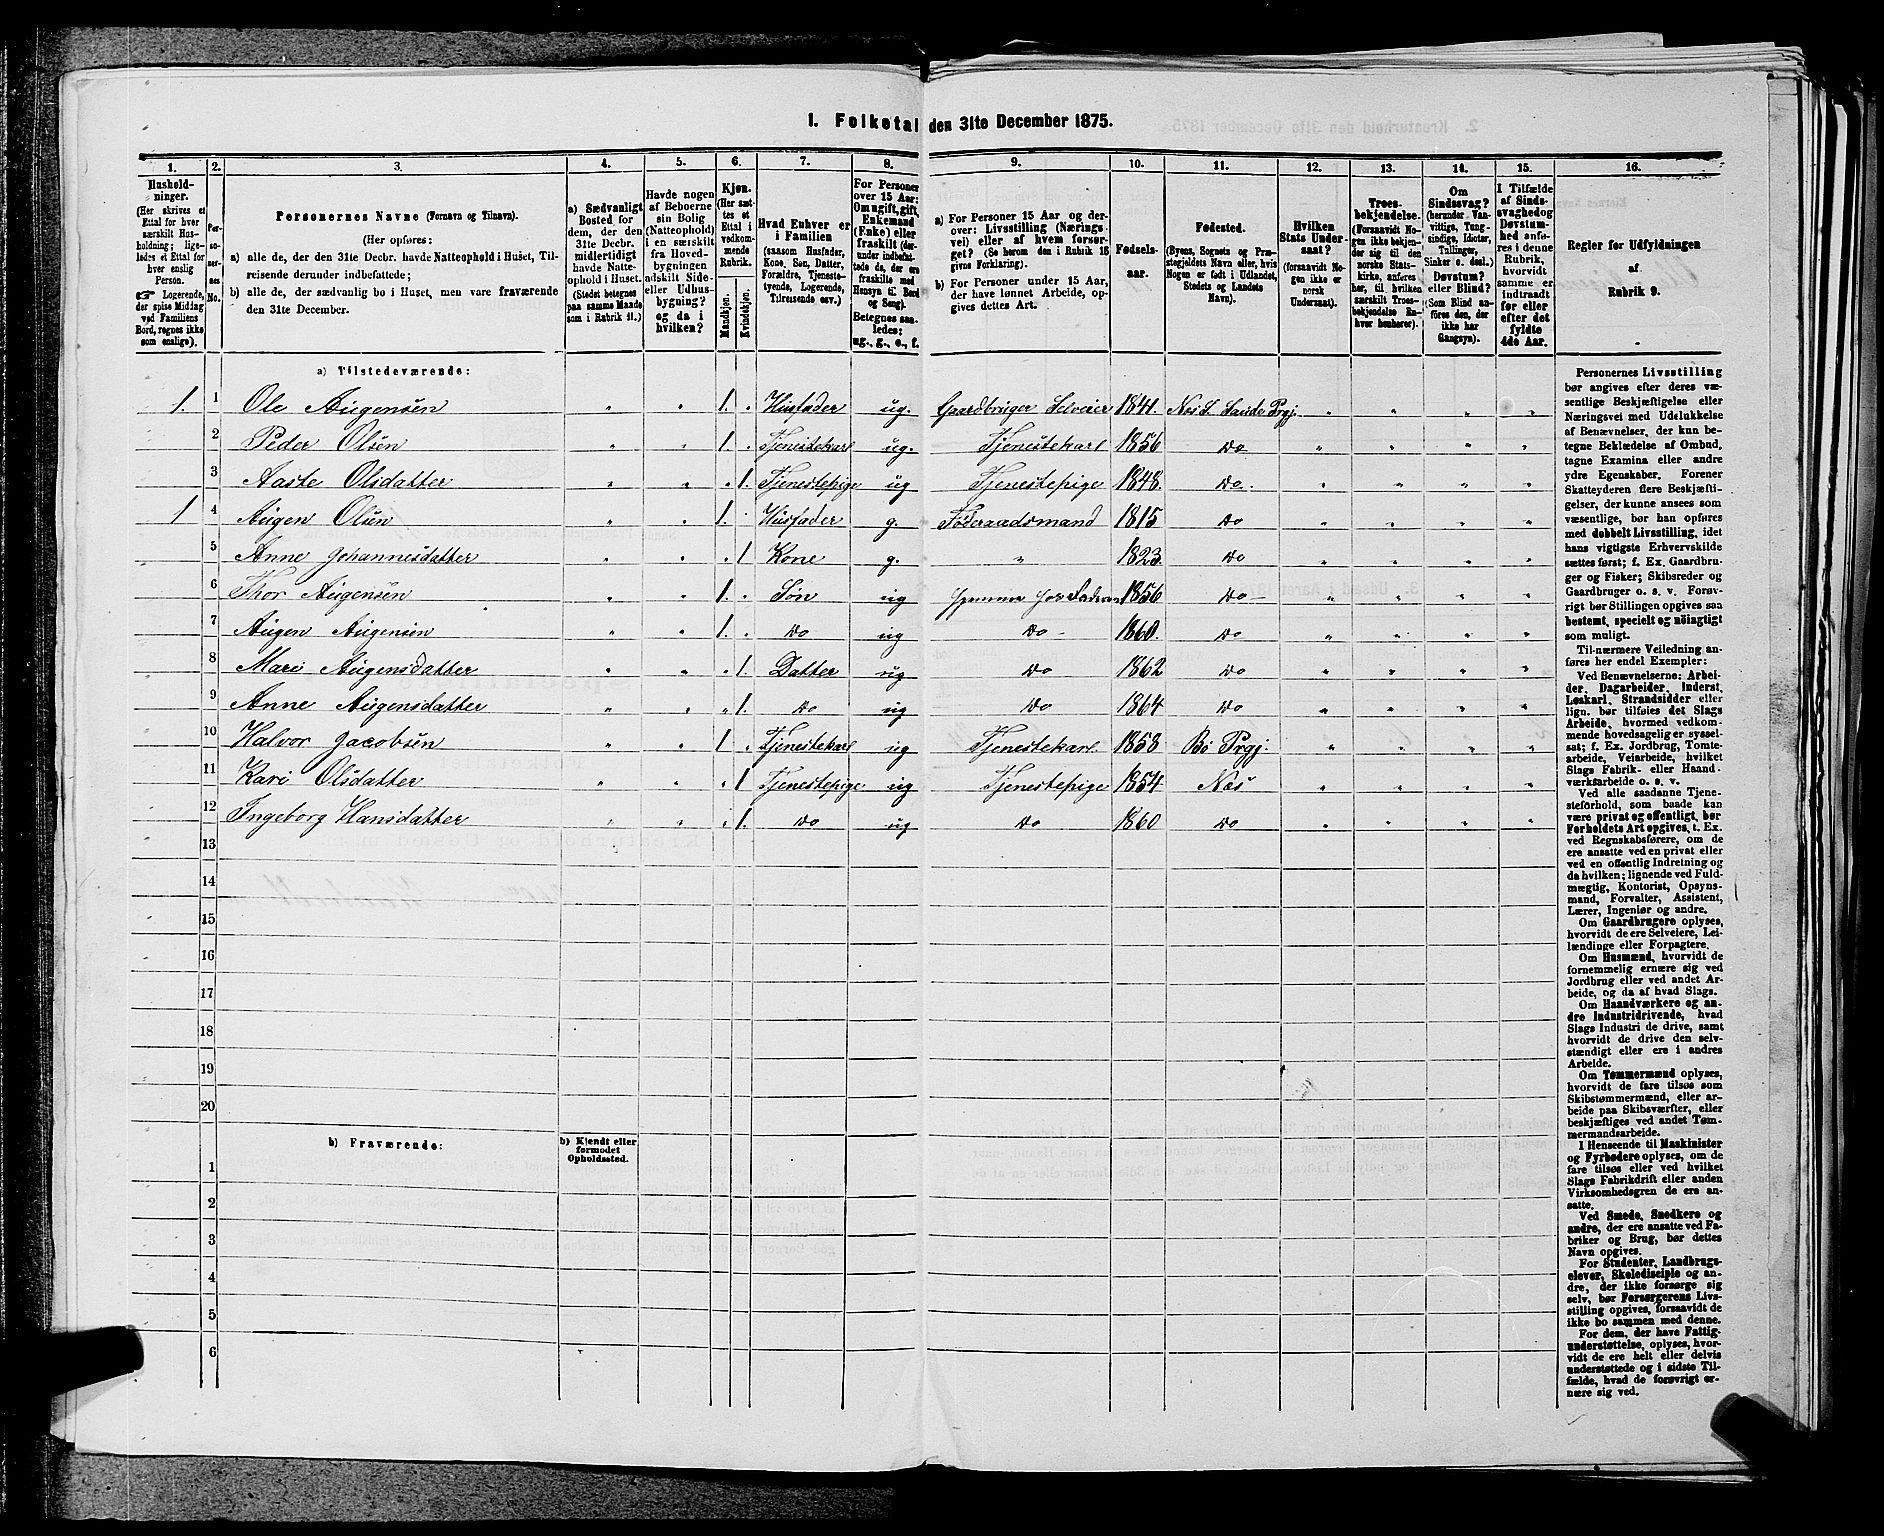 1. Folketal den 31te December 1875.
1. 2. 3. 4. 5. 6. 7. 8. 9. 10. 11. 12. 13. 14. 15. 16.
Husholdninger.
(Her skrives et Ettal for hver særskilt Husholdning; ligeledes et Ettal for hver enslig Person.
☞ Logerende, der spise Middag ved Familiens Bord, regnes ikke som enslige).
Personernes No.
Personernes Navne (Fornavn og Tilnavn).
(Her opføres:
a) alle de, der den 31te Decbr. havde Natteophold i Huset, Tilreisende derunder indbefattede;
b) alle de, der sædvanlig bo i Huset, men vare fraværende den 31te December.
a) Sædvanligt Bosted for dem, der den 31te Decbr. midlertidigt havde Natteophold i Huset.
(Stedet betegnes paa samme Maade som i Rubrik 11.)
Havde nogen af Beboerne sin Bolig (Natteophold) i en særskilt fra Hovedbygningen adskilt Side- eller Udhusbygning? og da i hvilken?
Kjøn.
(Her sættes et Ettal i vedkommende Rubrik.
Mandkjøn.
Kvindekjøn.
Hvad Enhver er i Familien
(saasom Husfader, Kone, Søn, Datter, Forældre, Tjenestetyende, Logerende, Tilreisende osv.)
For Personer over 15 Aar: Om ugift, gift, Enkemand (Enke) eller fraskilt (derunder indbefattede de, der ere fraskilte med Hensyn til Bord og Seng).
Betegnes saaledes: ug., g., e., f.
a) For Personer 15 Aar og derover: Livsstilling (Næringsvei) eller af hvem forsørget? (Se herom den i Rubrik 16 givne Forklaring).
b) For Personer under 15 Aar, der have lønnet Arbeide, opgives dettes Art.
Fødselsaar.
Fødested.
(Byens, Sognets og Præstegjeldets Navn eller, hvis Nogen er født i Udlandet, Stedets og Landets Navn).
Hvilken Stats Undersaat?
(forsaavidt Nogen ikke er norsk Undersaat).
Troesbekjendelse.
(Forsaavidt Nogen ikke bekjender sig til den norske Statskirke, anføres her, til hvilken særskilt Troesbekjendelse Enhver henhører).
Om Sindssvag?
(herunder Vanvittige, Tungsindige, Idioter, Tullinger, Sinker o. desl.)
Døvstum?
eller Blind?
(Som Blind anføres den, der ikke har Gangsyn).
I Tilfælde af Sindssvaghed og Døvstumhed anføres i denne Rubrik, hvorvidt samme er indtraadt før eller efter det fyldte 4de Aar.
Regler før Udfyldningen
af
Rubrik 9.
a) Tilstedeværende:
1. 1 Ole Augensen " " 1. " Husfader ug. Gaardbruger Selveier 1841. Næs S. Saude Prgj. " " " "
2 Peder Olsen " " 1. " Tjenestekarl ug. Tjenestekarl 1856 Do " " " "
3 Aaste Olsdatter " " " 1. Tjenestepige ug Tjenestepige 1848. Do. " " " "
1 4 Augen Olsen " " 1. Husfader g. Føderaadsmand 1815 Do " " " "
5 Anne Johannesdatter " " " 1 Kone g. " 1823. Do " " " "
6 Thor Augensen " " 1. " Søn ug hjemme hos Faderen 1856 Do " " " "
7 Augen Augensen " " 1. " Do ug Do 1860. Do " " " "
8 Mari Augensdatter " " " 1. Datter ug Do 1862 Do " " " "
9 Anne Augensdatter " " " 1. Do ug Do 1864 Do " " " "
10 Halvor Jacobsen " " 1 " Tjenestekarl ug Tjenestekarl 1858 Bø Prgj. " " " "
11 Kari Olsdatter " " " 1 Tjenestepige ug Tjenestepige 1854 Næs " " " "
12 Ingeborg Hansdatter " " " 1. Do ug Do 1860 Do " " " "
13
14
15
16
17
18
19
20
b) Fraværende:
b) Kjendt eller formodet Opholdssted.
1
2
3
4
5
6
Personernes Livsstilling
bør angives efter deres væ-
sentlige Beskjæftigelse eller
Næringsvei med Udelukkelse
af Benævnelser, der kun be-
tegne Beklædelse af Ombud,
tagne Examina eller andre
ydre Egenskaber. Forener
Skatteyderen flere Beskjæfti-
gelser, der kunne ansees som
væsentlige, bør han opføres
med dobbelt Livsstilling, idet
hans vigtigste Erhvervskilde
sættes først; f. Ex. Gaardbru-
ger og Fisker; Skibsreder og
Gaardbruger o. s. v. Forøv-
rigt bør Stillingen opgives saa
bestemt, specielt og nöiagtigt
som muligt.
Til nærmere Veiledning an-
føres her endel Exempler:
Ved Benævnelserne: Arbei-
der, Dagarbeider, Inderst,
Løskarl, Strandsidder eller
lign. bør tilføies det Slags
Arbeide, hvormed vedkom-
mende hovedsagelig er syssel-
sat; f. Ex. Jordbrug, Tomte-
arbeide, Veiarbeide, hvilket
Slags Fabrik- eller Haand-
værksarbeide o. s. v.
Ved alle saadanne Tjene-
steforhold, som baade kan
være privat og offentligt, bør
Forholdets Art opgives, t. Ex.
ved Regnskabsførere, om de
ere ansatte ved en privat eller
ved en offentlig Indretning og
da hvilken; lignende ved Fuld-
mægtig, Kontorist, Opsyns-
mand, Forvalter, Assistent,
Lærer, Ingeniør og andre.
Om Gaardbrugere oplyses,
hvorvidt de ere Selveiere, Lei-
lændinge eller Forpagtere.
Om Husmænd, hvorvidt de
fornemmelig ernære sig ved
Jordbrug eller ved andet Ar-
beide, og da af hvad Slags.
Om Haandværkere og an-
dre Industridrivende, hvad
Slags Industri de drive, samt
hvorvidt de drive den selv-
stændigt eller ere i andres
Arbeide.
Om Tømmermænd oplyses,
hvorvidt de fare tilsøs som
Skibstømmermænd, eller ar-
beide paa Skibsværfter, eller
beskjæftiges ved andet Tøm-
mermandsarbeide.
I Henseende til Maskinister
og Fyrbødere oplyses, om de
fare tilsøs eller ved hvilket
Slags Fabrikdrift eller anden
Virksomhedsgren de ere an-
satte.
Ved Smede, Snedkere og
andre, der ere ansatte ved Fa-
briker og Brug, bør dettes
Navn opgives.
For Studenter, Landbrugs-
elever, Skoledisciple og an-
dre, der ikke forsørge sig
selv, bør Forsørgerens Livs-
stilling opgives, forsaavidt de
ikke bo sammen med denne.
For dem, der have Fattig-
understøttelse, oplyses, hvor-
vidt de ere helt eller delvis
understøttede og i sidste Til-
fælde, hvad de forøvrigt er-
nære sig ved.